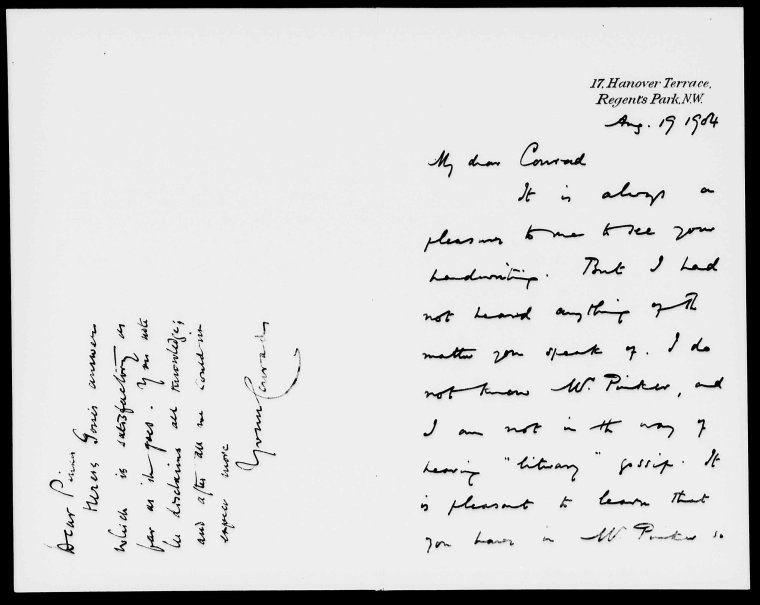 17, Hanover Terrace,
Regent's Park, N.W.
Aug. 19 1904
My dear Conrad
It is always a
pleasure to me to see your
handwriting. But I had
not heard anything of the
matter you speak of. I do
not know Mr. Pinker, and
I am not in the way of
hearing "literary" gossip. It
is pleasant to learn that
you have in Mr Pinker so
Dear
Here is answer
which is satisfactory as
far as it goes. You note
he disclaims all knowledge;
and after all we could
expect more
Yours Conrad